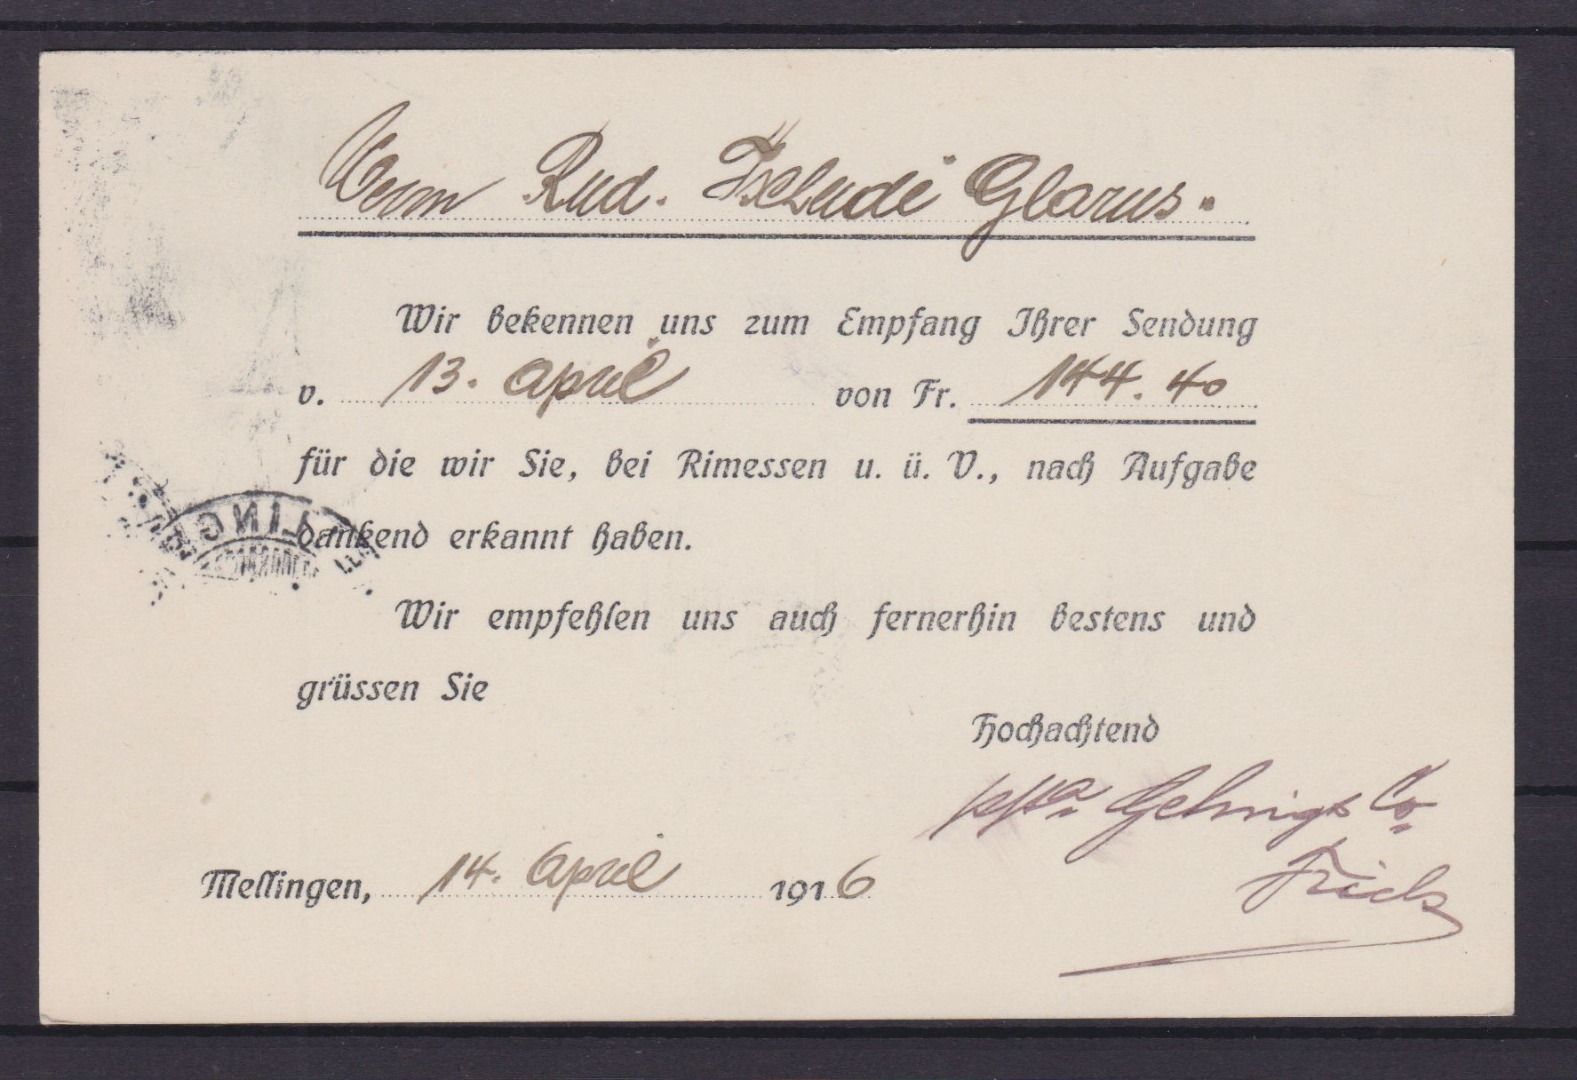 Herrn Rud. Tschudi Glarus.
Wir bekennen uns zum Empfang Ihrer Sendung
v. 13. April von Fr. 144.40
für die wir Sie, bei Rimessen u. ü. V., nach Aufgabe
dankend erkannt haben.
Wir empfehlen uns auch fernerhin bestens und
grüssen Sie
Hochachtend
ppa. Gehrig & Co.
Frick
Mellingen, 14. April 1916